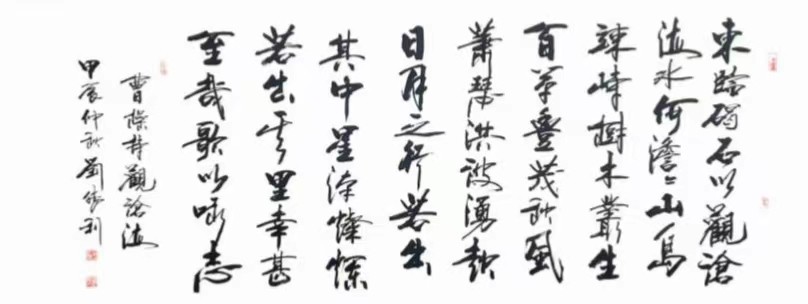 東臨碣石以觀滄
海水何澹々山島
竦峙樹木叢生
百草豐茂秋風
蕭瑟洪波湧起
日月之行若出
其中星漢燦爛
若出其里幸甚
至哉歌以咏志
曹操詩觀滄海
甲辰仲秋劉